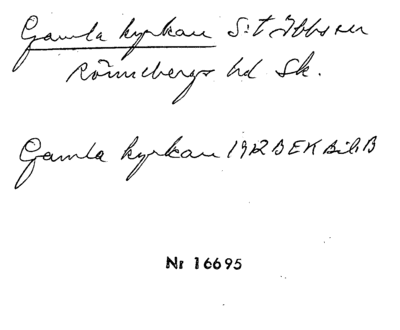 Gamla kyrkan S:t Ibbs sn
Rönnebergs hd Sk.
Gamla kyrkan 1912 B EK
Nr 16695